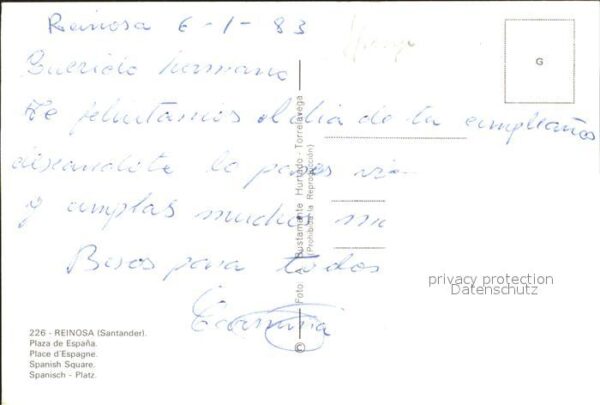 Reinosa 6-1-83
Querido hermano
Te felicitamos el dia de tu cumpleaños
deseandote lo pases
y cumplas muchos
Besos para todos
G
Foto: Bustamante Hurtado - Torrelavega
(Prohibida la Reproducción)
©
privacy protection
Datenschutz
226 - REINOSA (Santander).
Plaza de España.
Place d'Espagne.
Spanish Square.
Spanisch - Platz.